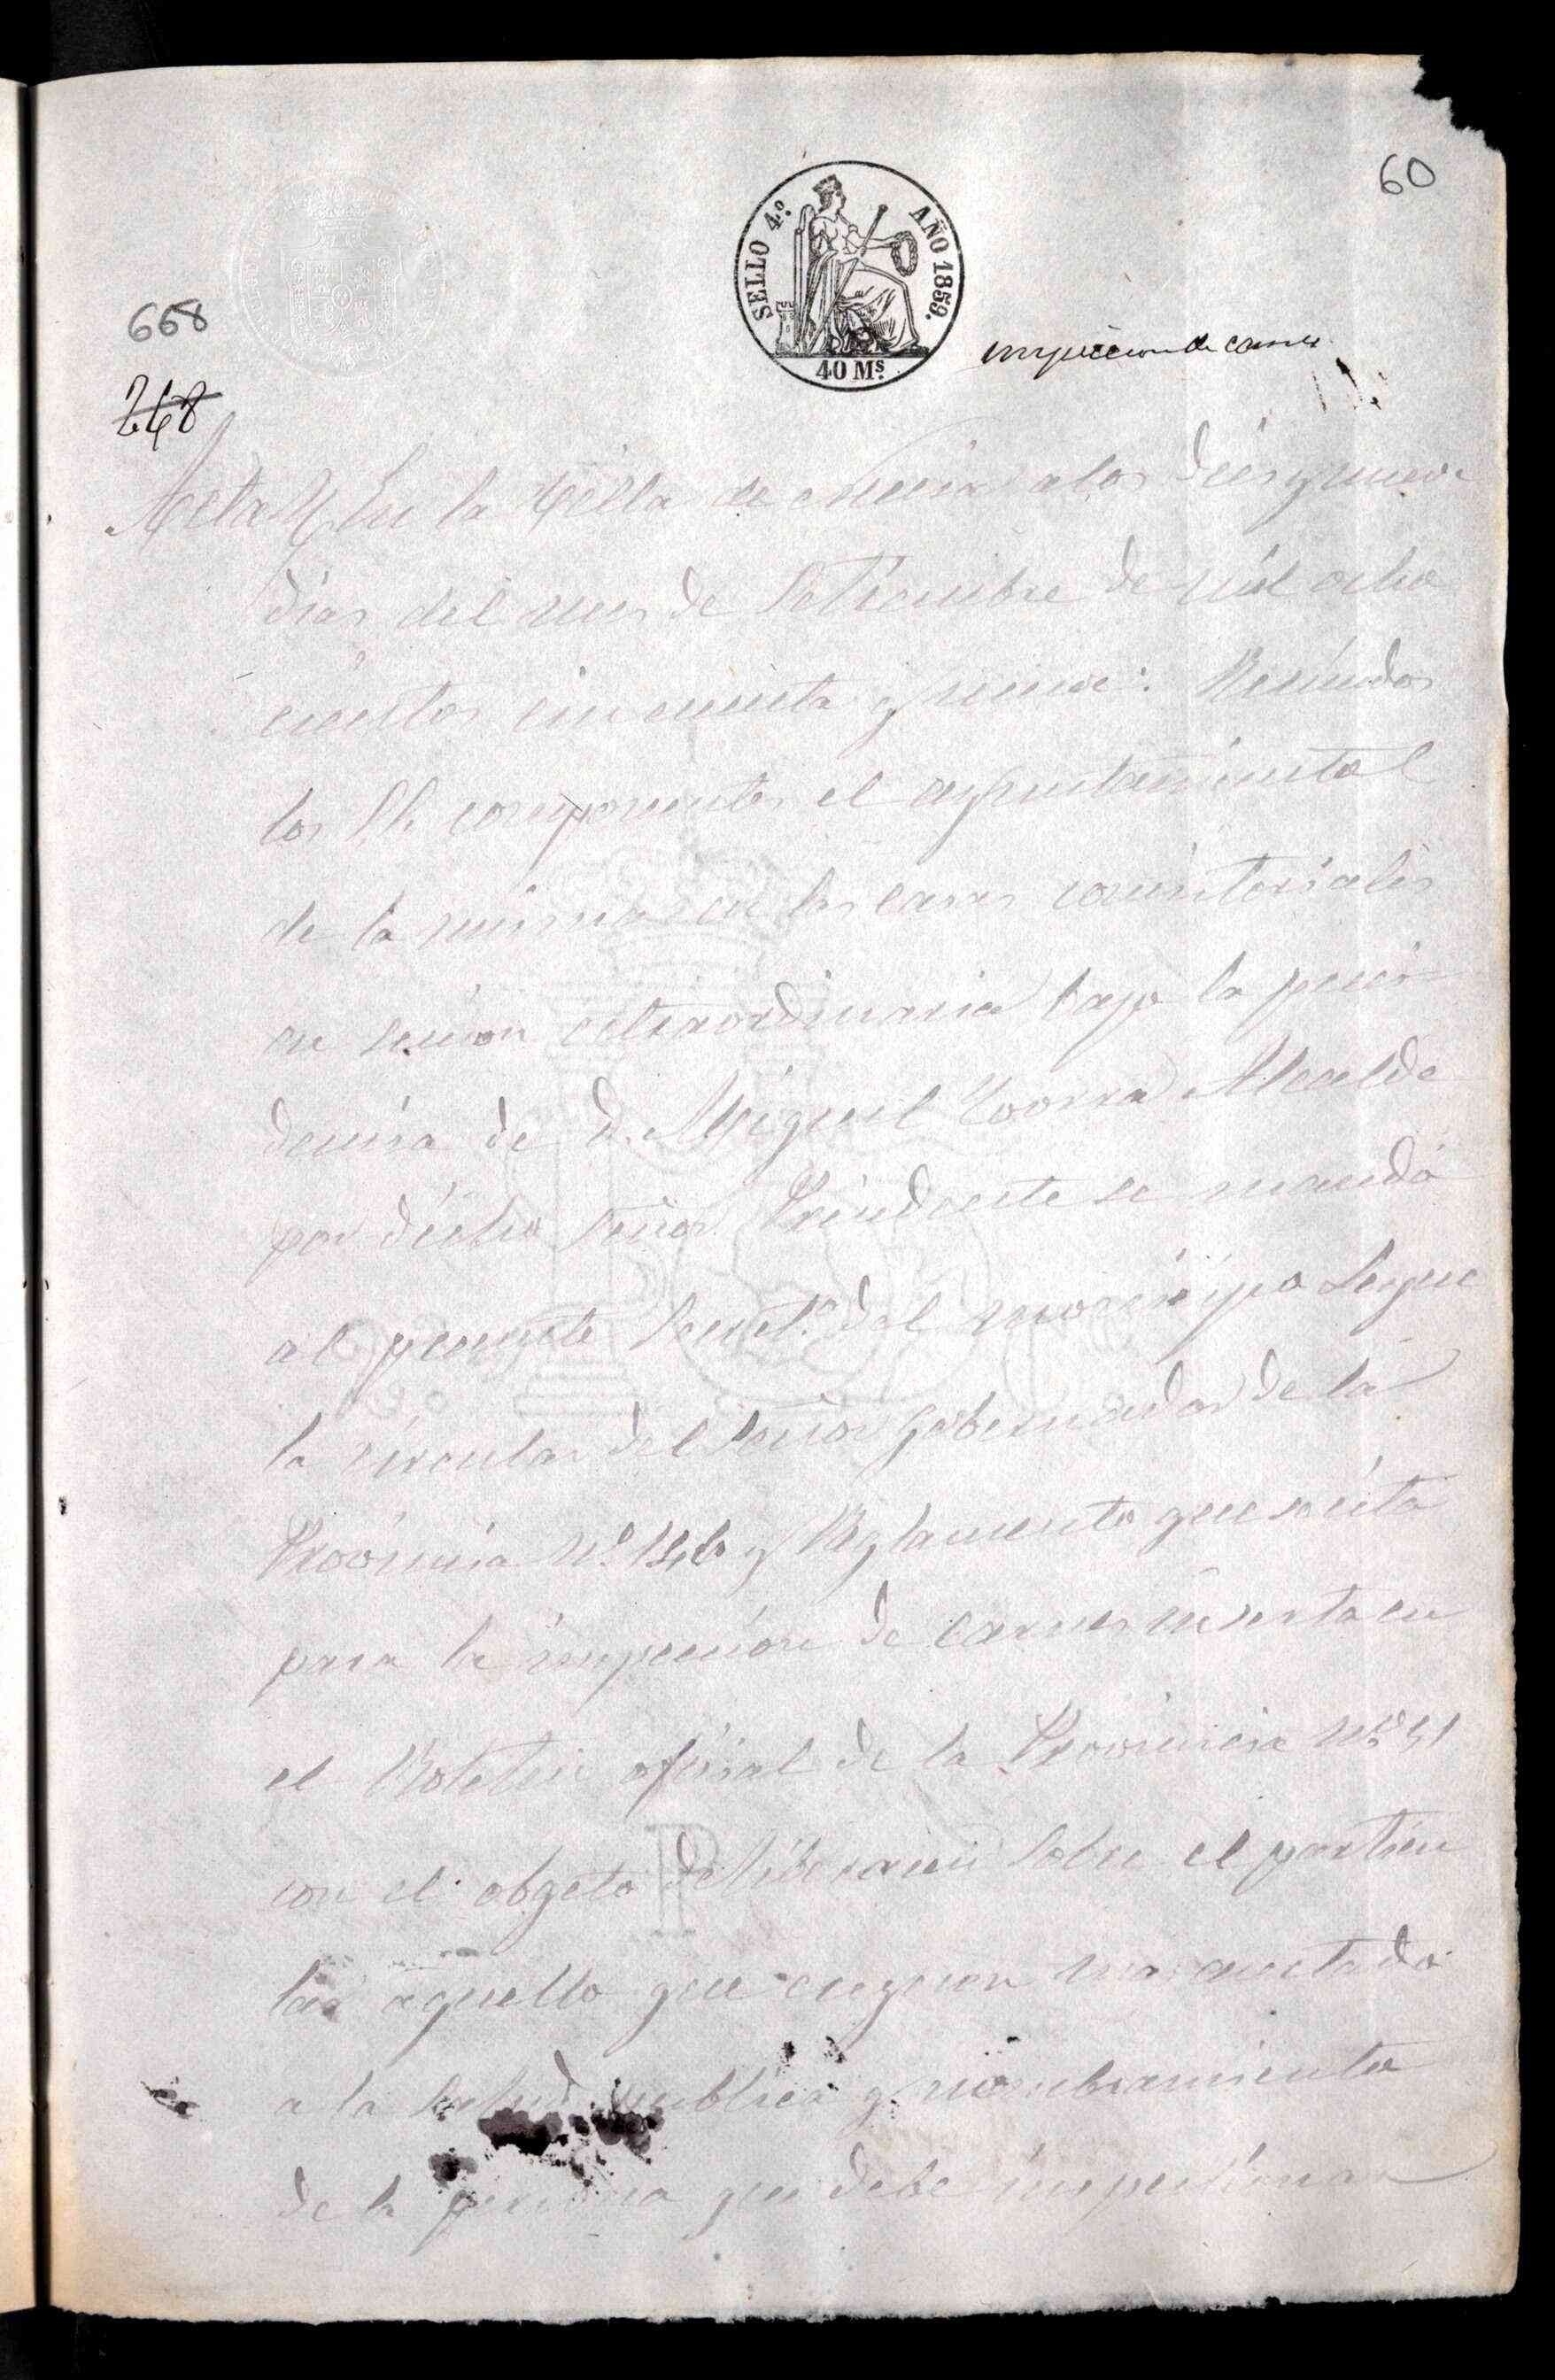 60
SELLO 4.º AÑO 1859.
40 Ms.
668
inspeccion de carnes
248
Acta // En la Villa de a los dies y nueve
dias del mes de Setiembre de mil ocho
cientos cincuenta y nueve: Reunidos
los SS. componentes el ayuntamiento
de la misma en las casas consistoriales
en sesion extraordinaria bajo la presi-
dencia de D. Miguel Alcalde
por dicho señor Presidente se mandó
al presente Secret.º del municipio
la circular del Señor Gobernador de la
Provincia N.º 146 y Reglamento que se cita
para la inspeccion de carnes inserta en
el Boletin oficial de la Provincia Nº
con el objeto deliberasen sobre el particu
lar aquello que creyesen mas acertado
a la salud publica y nombramiento
de la persona que debe inspeccionar